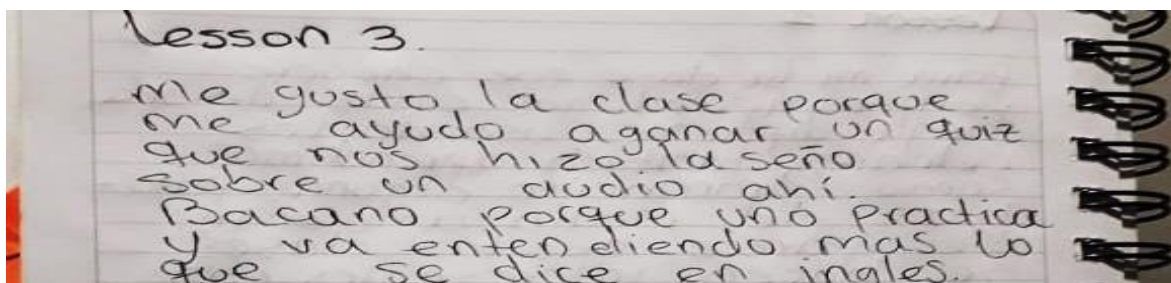 Lesson 3.
Me gusto la clase porque
me ayudo aganar un quiz
que nos hizo la seño
sobre un audio ahí.
Bacano porque uno practica
y va entendiendo mas lo
que se dice en ingles.